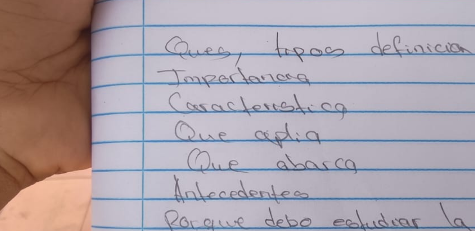 Ques, tipos definicion
Importancia
Caracteristica
Que aplia
Que abarca
Antecedentes
Porque debo estudiar la